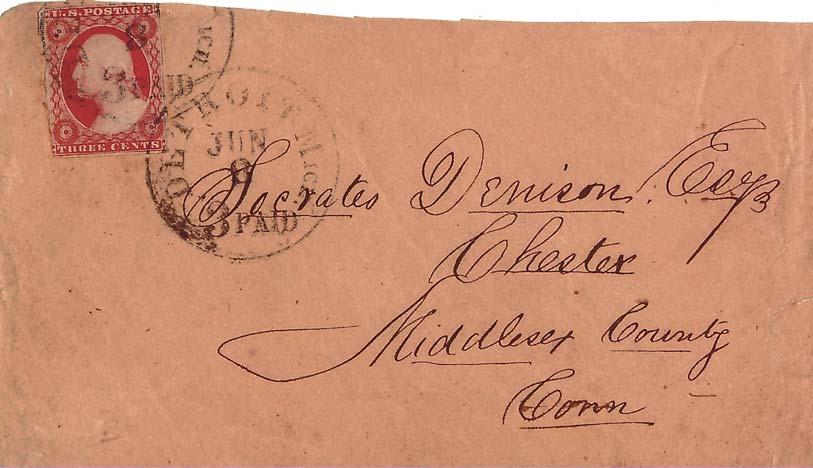 U.S. POSTAGE
THREE CENTS
8
3 PAID
ICH.
DETROIT MICH.
JUN
8
3 PAID
Socrates Denison. Esqr
Chester
Middlesex County
Conn